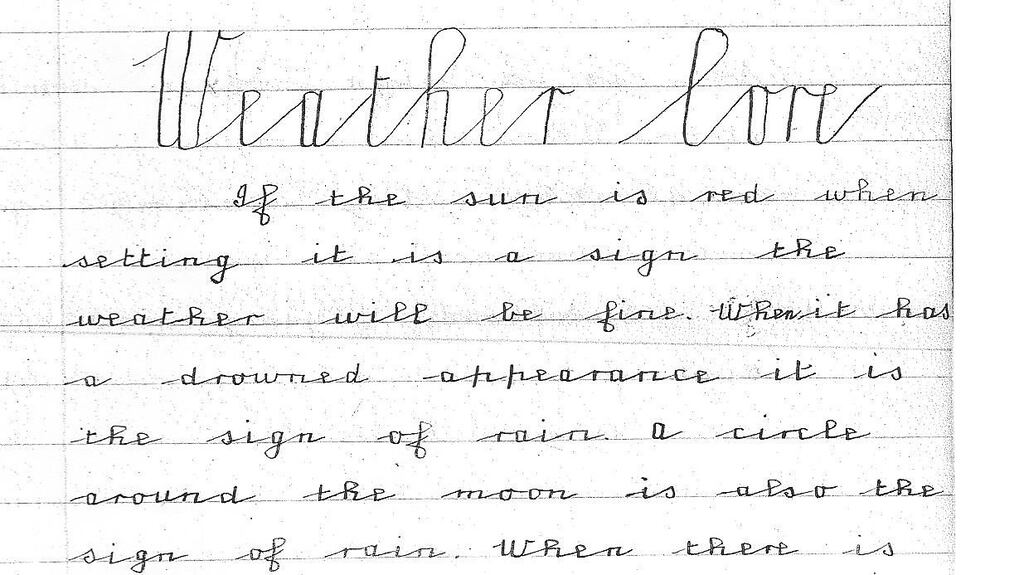 Weather lore
If the sun is red when
setting it is a sign the
weather will be fine. When it has
a drowned appearance it is
the sign of rain. A circle
around the moon is also the
sign of rain. When there is